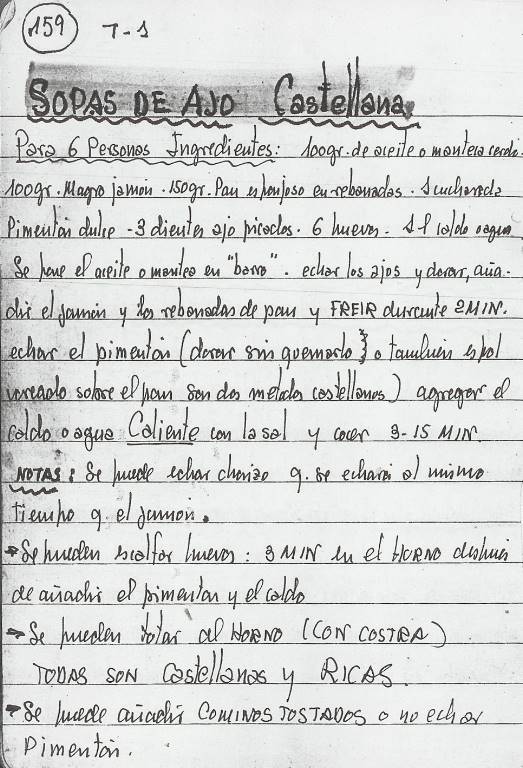 159 T-1
SOPAS DE AJO Castellana
Para 6 Personas Ingredientes: 100gr. de aceite o manteca cerdo.
100gr. Magro jamón. 150gr. Pan esponjoso en rebanadas. 1 cucharada
Pimentón dulce - 3 dientes ajo picados. 6 huevos. 1 l caldo o agua
Se pone el aceite o manteca en "barro". echar los ajos y dorar, aña-
dir el jamón y las rebanadas de pan y FREIR durante 2 MIN.
echar el pimentón (dorar sin quemarlo } o también espol
voreado sobre el pan son dos metodos castellanos) agregar el
caldo o agua Caliente con la sal y cocer 3-15 MIN.
NOTAS: Se puede echar chorizo q. se echará al mismo
tiempo q. el jamón.
Se pueden escalfar huevos: 3 MIN en el HORNO después
de añadir el pimentón y el caldo
Se pueden al HORNO (CON COSTRA)
TODAS SON Castellanas y RICAS.
Se puede añadir COMINOS TOSTADOS o no echar
Pimentón.